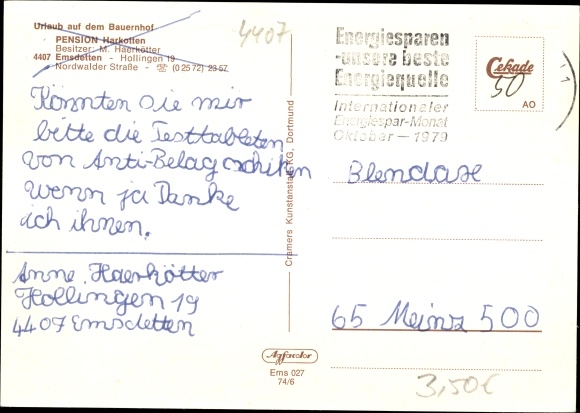 Urlaub auf dem Bauernhof
PENSION Harkotten
Besitzer: M. Haerkötter
4407 Emsdetten - Hollingen 19
Nordwalder Straße - ☏ (0 25 72) 23 57
4407
Könnten sie mir
bitte die Testtableten
von Anti-Belag schiken
wenn ja Danke
ich ihnen.
Anne Haerkötter
Hollingen 19
4407 Emsdetten
Cramers Kunstanstalt KG, Dortmund
Agfacolor
Ems 027
74/6
Energiesparen
-unsere beste
Energiequelle
Internationaler
Energiespar-Monat
Oktober - 1979
Cekade
50
AO
Blendase
65 Meinz 500
3,50€